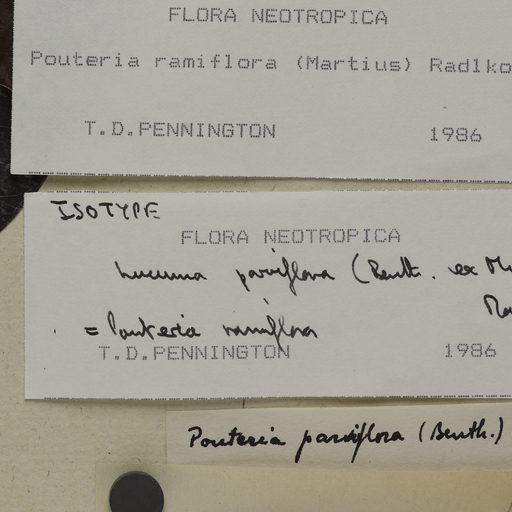 FLORA NEOTROPICA
Pouteria ramiflora (Martius) Radlko
T.D.PENNINGTON 1986
ISOTYPE
FLORA NEOTROPICA
Lucuma parviflora (Benth. ex M
= Pouteria ramiflora
T.D.PENNINGTON 1986
Pouteria parviflora (Benth.)